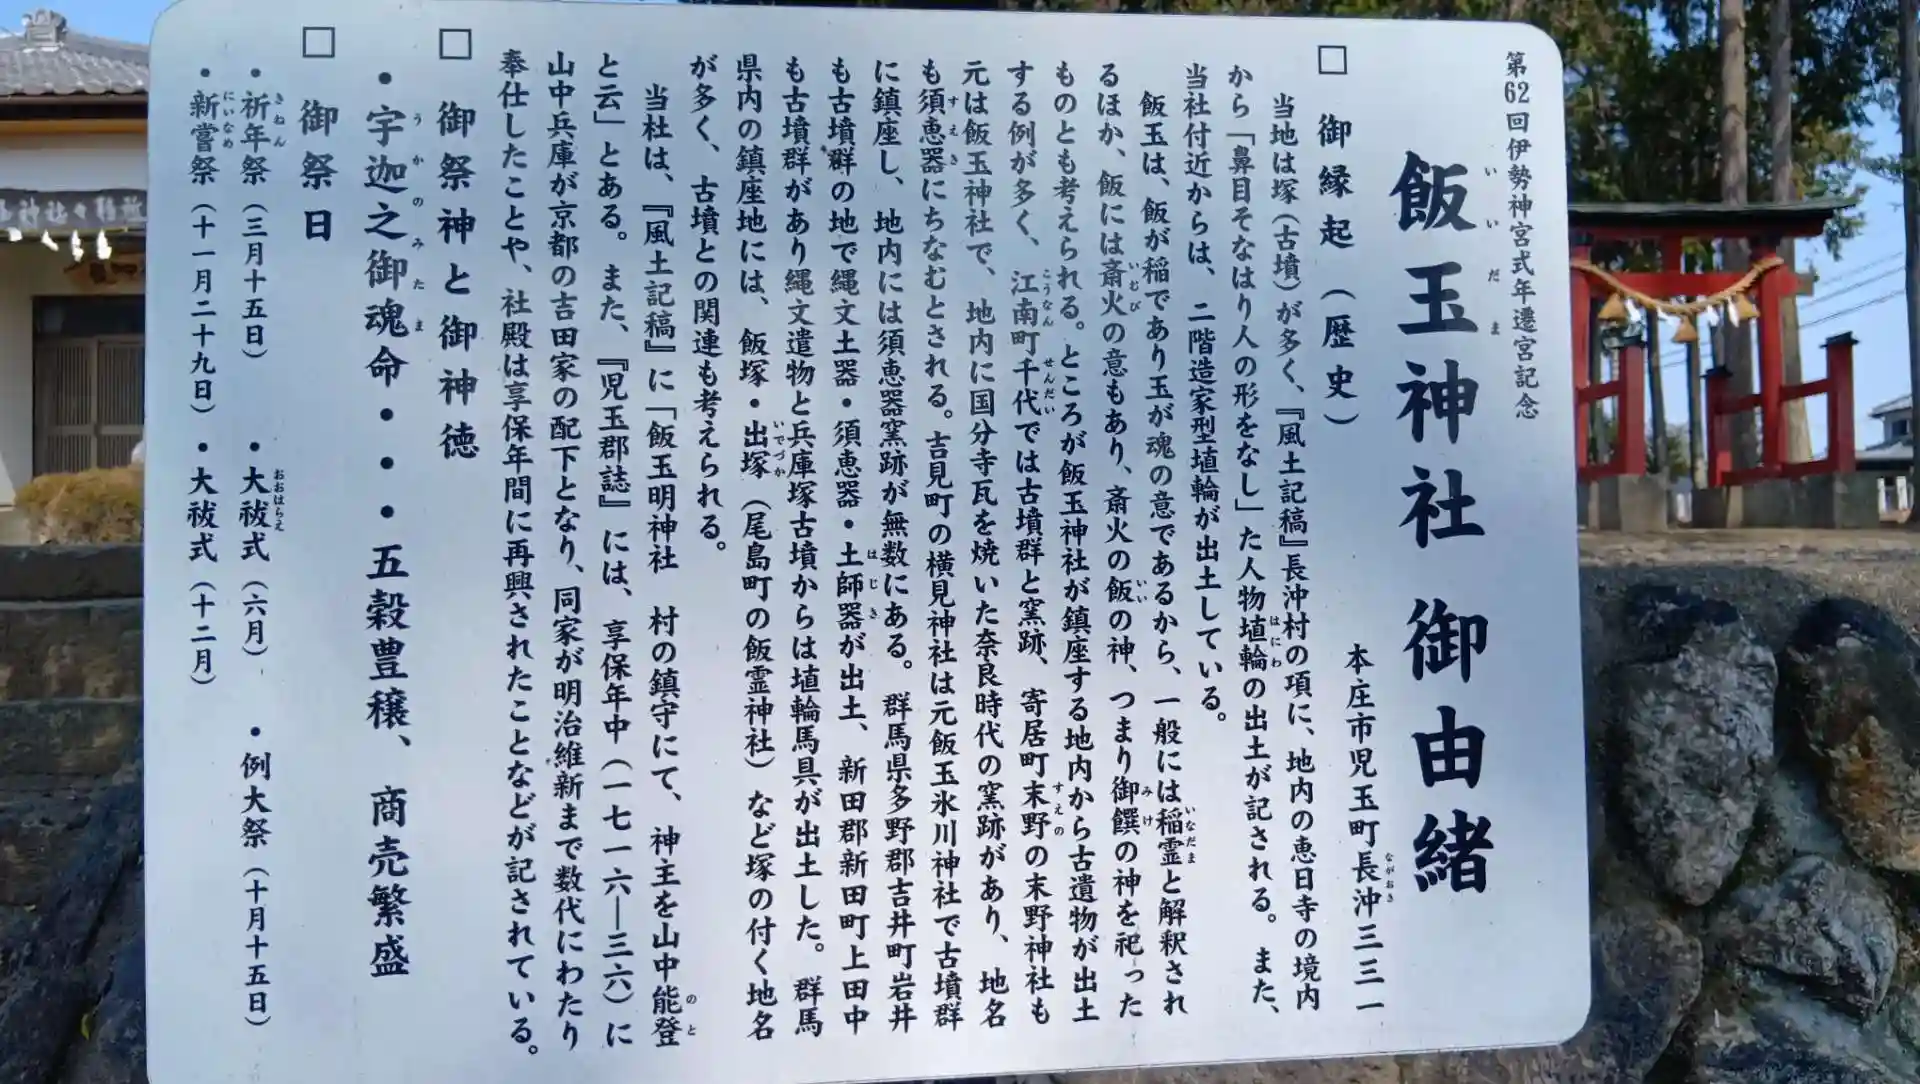 第62回伊勢神宮式年遷宮記念
飯玉神社 御由緒
本庄市児玉町長沖三三一
□ 御縁起(歴史)
当地は塚(古墳)が多く、『風土記稿』長沖村の項に、地内の恵日寺の境内
から「鼻目そなはり人の形をなし」た人物埴輪の出土が記される。また、
当社付近からは、二階造家型埴輪が出土している。
飯玉は、飯が稲であり玉が魂の意であるから、一般には稲霊と解釈され
るほか、飯には斎火の意もあり、斎火の飯の神、つまり御饌の神を祀った
ものとも考えられる。ところが飯玉神社が鎮座する地内から古遺物が出土
する例が多く、江南町千代では古墳群と窯跡、寄居町末野の末野神社も
元は飯玉神社で、地内に国分寺瓦を焼いた奈良時代の窯跡があり、地名
も須恵器にちなむとされる。吉見町の横見神社は元飯玉氷川神社で古墳群
に鎮座し、地内には須恵器窯跡が無数にある。群馬県多野郡吉井町岩井
も古墳群の地で縄文土器・須恵器・土師器が出土、新田郡新田町上田中
も古墳群があり縄文遺物と兵庫塚古墳からは埴輪馬具が出土した。群馬
県内の鎮座地には、飯塚・出塚(尾島町の飯霊神社)など塚の付く地名
が多く、古墳との関連も考えられる。
当社は、『風土記稿』に「飯玉明神社 村の鎮守にて、神主を山中能登
と云」とある。また、『児玉郡誌』には、享保年中(一七一六―三六)に
山中兵庫が京都の吉田家の配下となり、同家が明治維新まで数代にわたり
奉仕したことや、社殿は享保年間に再興されたことなどが記されている。
□ 御祭神と御神徳
・宇迦之御魂命・・・五穀豊穣、商売繁盛
□ 御祭日
・祈年祭(三月十五日) ・大祓式(六月) ・例大祭(十月十五日)
・新嘗祭(十一月二十九日) ・大祓式(十二月)